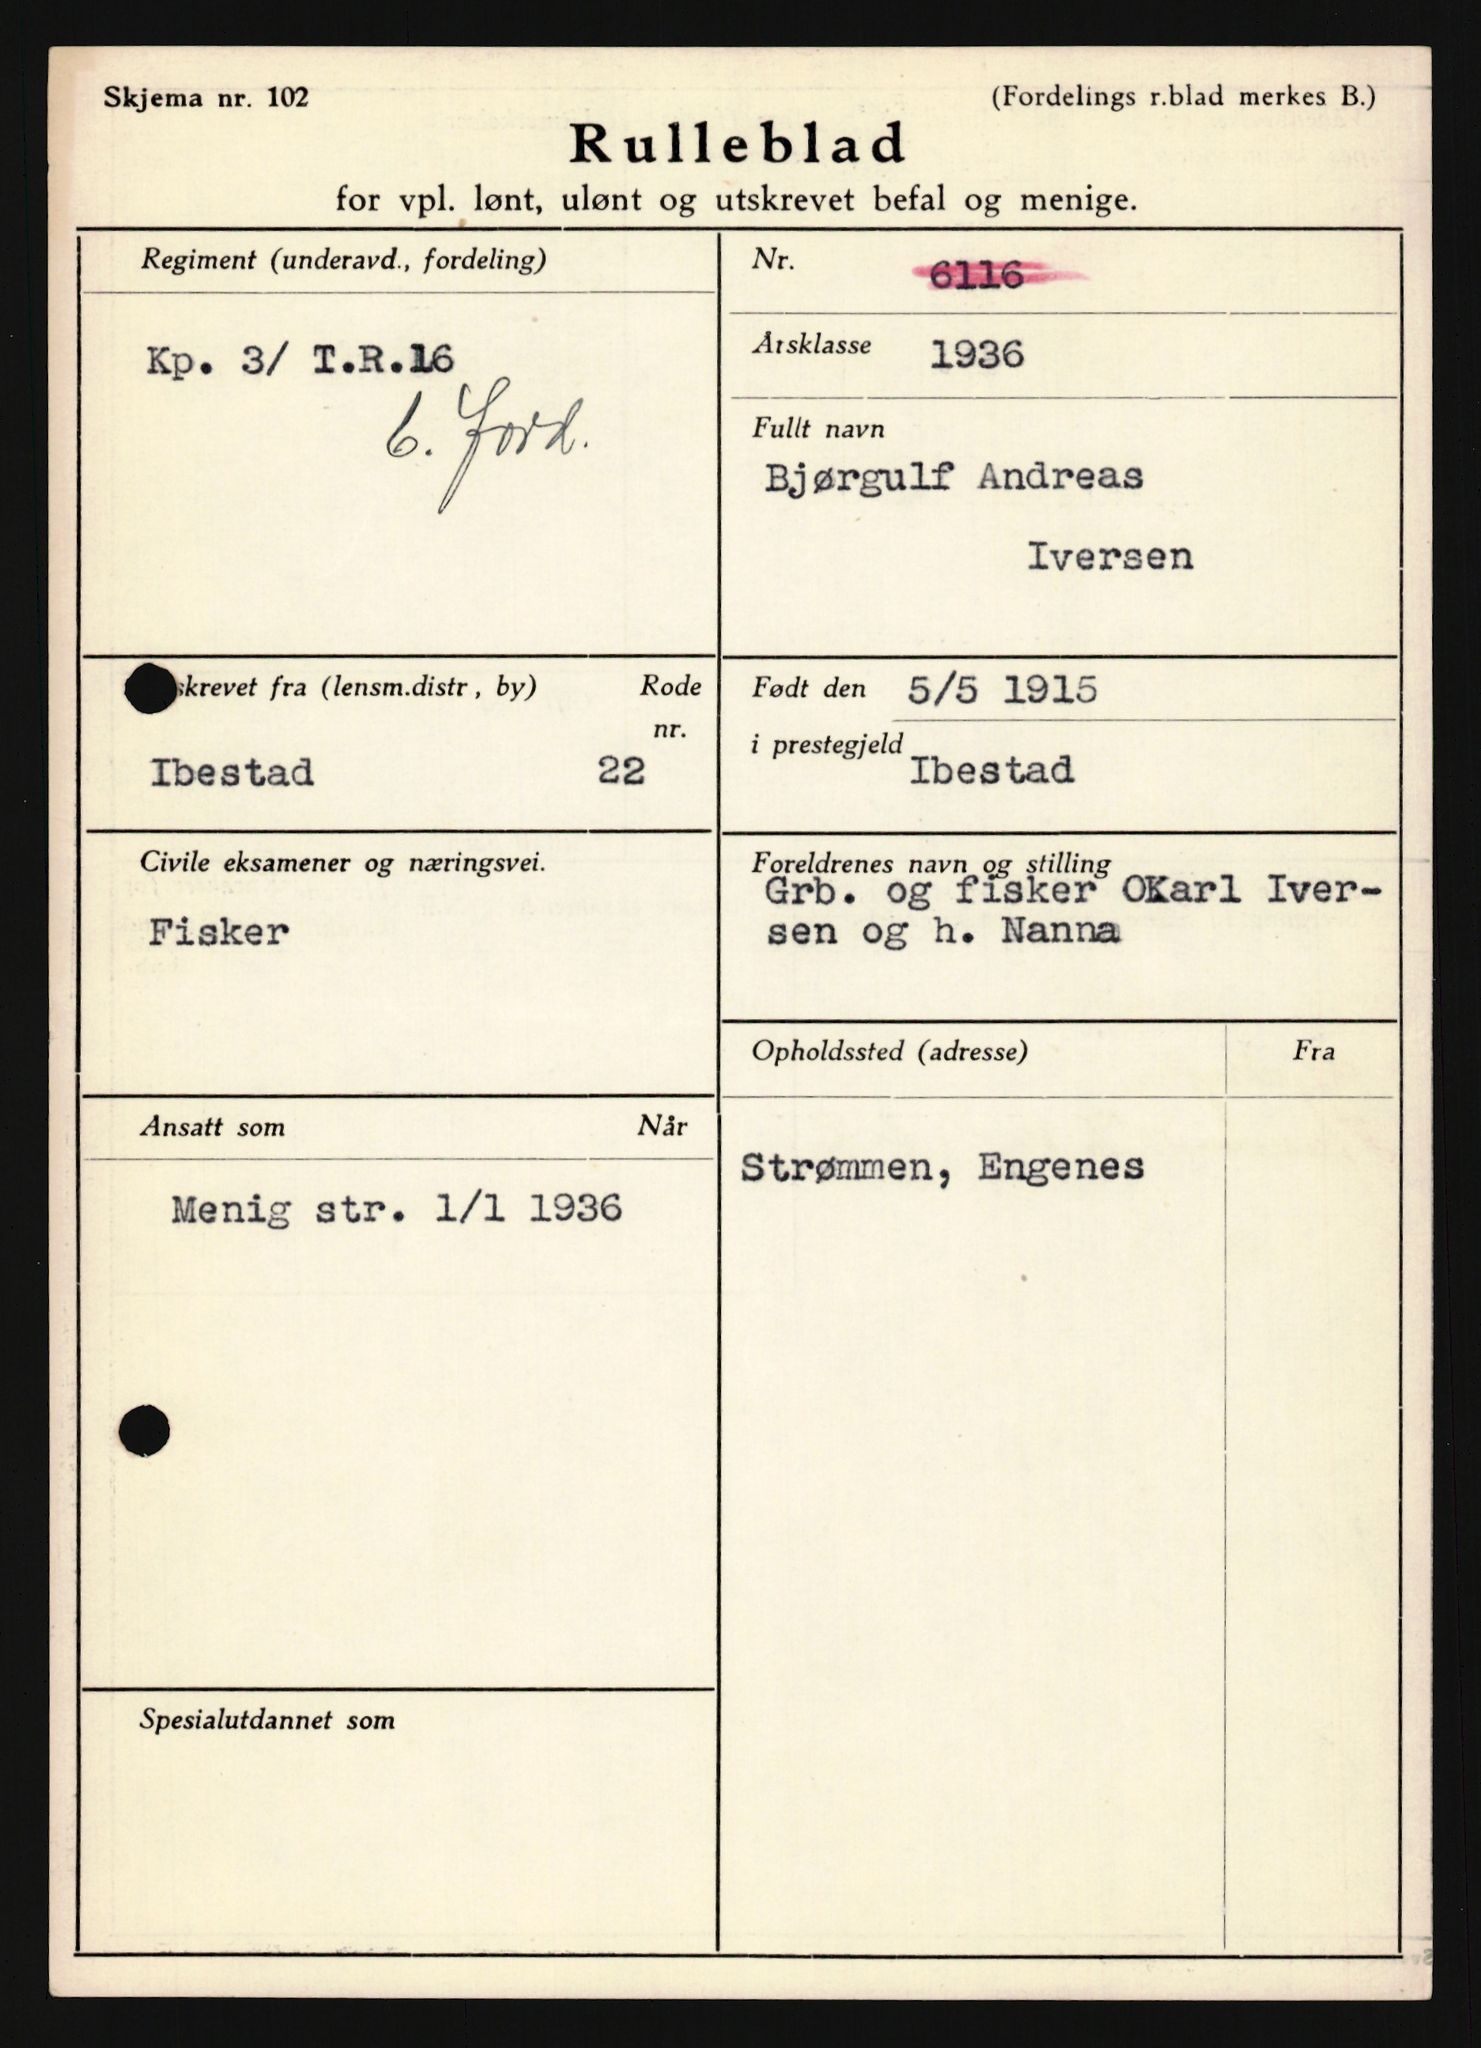 Skjema nr. 102
(Fordelings r.blad merkes B.)
Rulleblad
for vpl. lønt, ulønt og utskrevet befal og menige.
Regiment (underavd., fordeling)
Kp. 3/ T.R.16
6. ford.
Nr. 6116
Årsklasse 1936
Fullt navn
Bjørgulf Andreas
Iversen
skrevet fra (lensm.distr, by) Rode
nr.
Ibestad 22
Født den 5/5 1915
i prestegjeld
Ibestad
Civile eksamener og næringsvei.
Fisker
Foreldrenes navn og stilling
Grb. og fisker OKarl Iver-
sen og h. Nanna
Ansatt som Når
Menig str. 1/1 1936
Opholdssted (adresse) Fra
Strømmen, Engenes
Spesialutdannet som